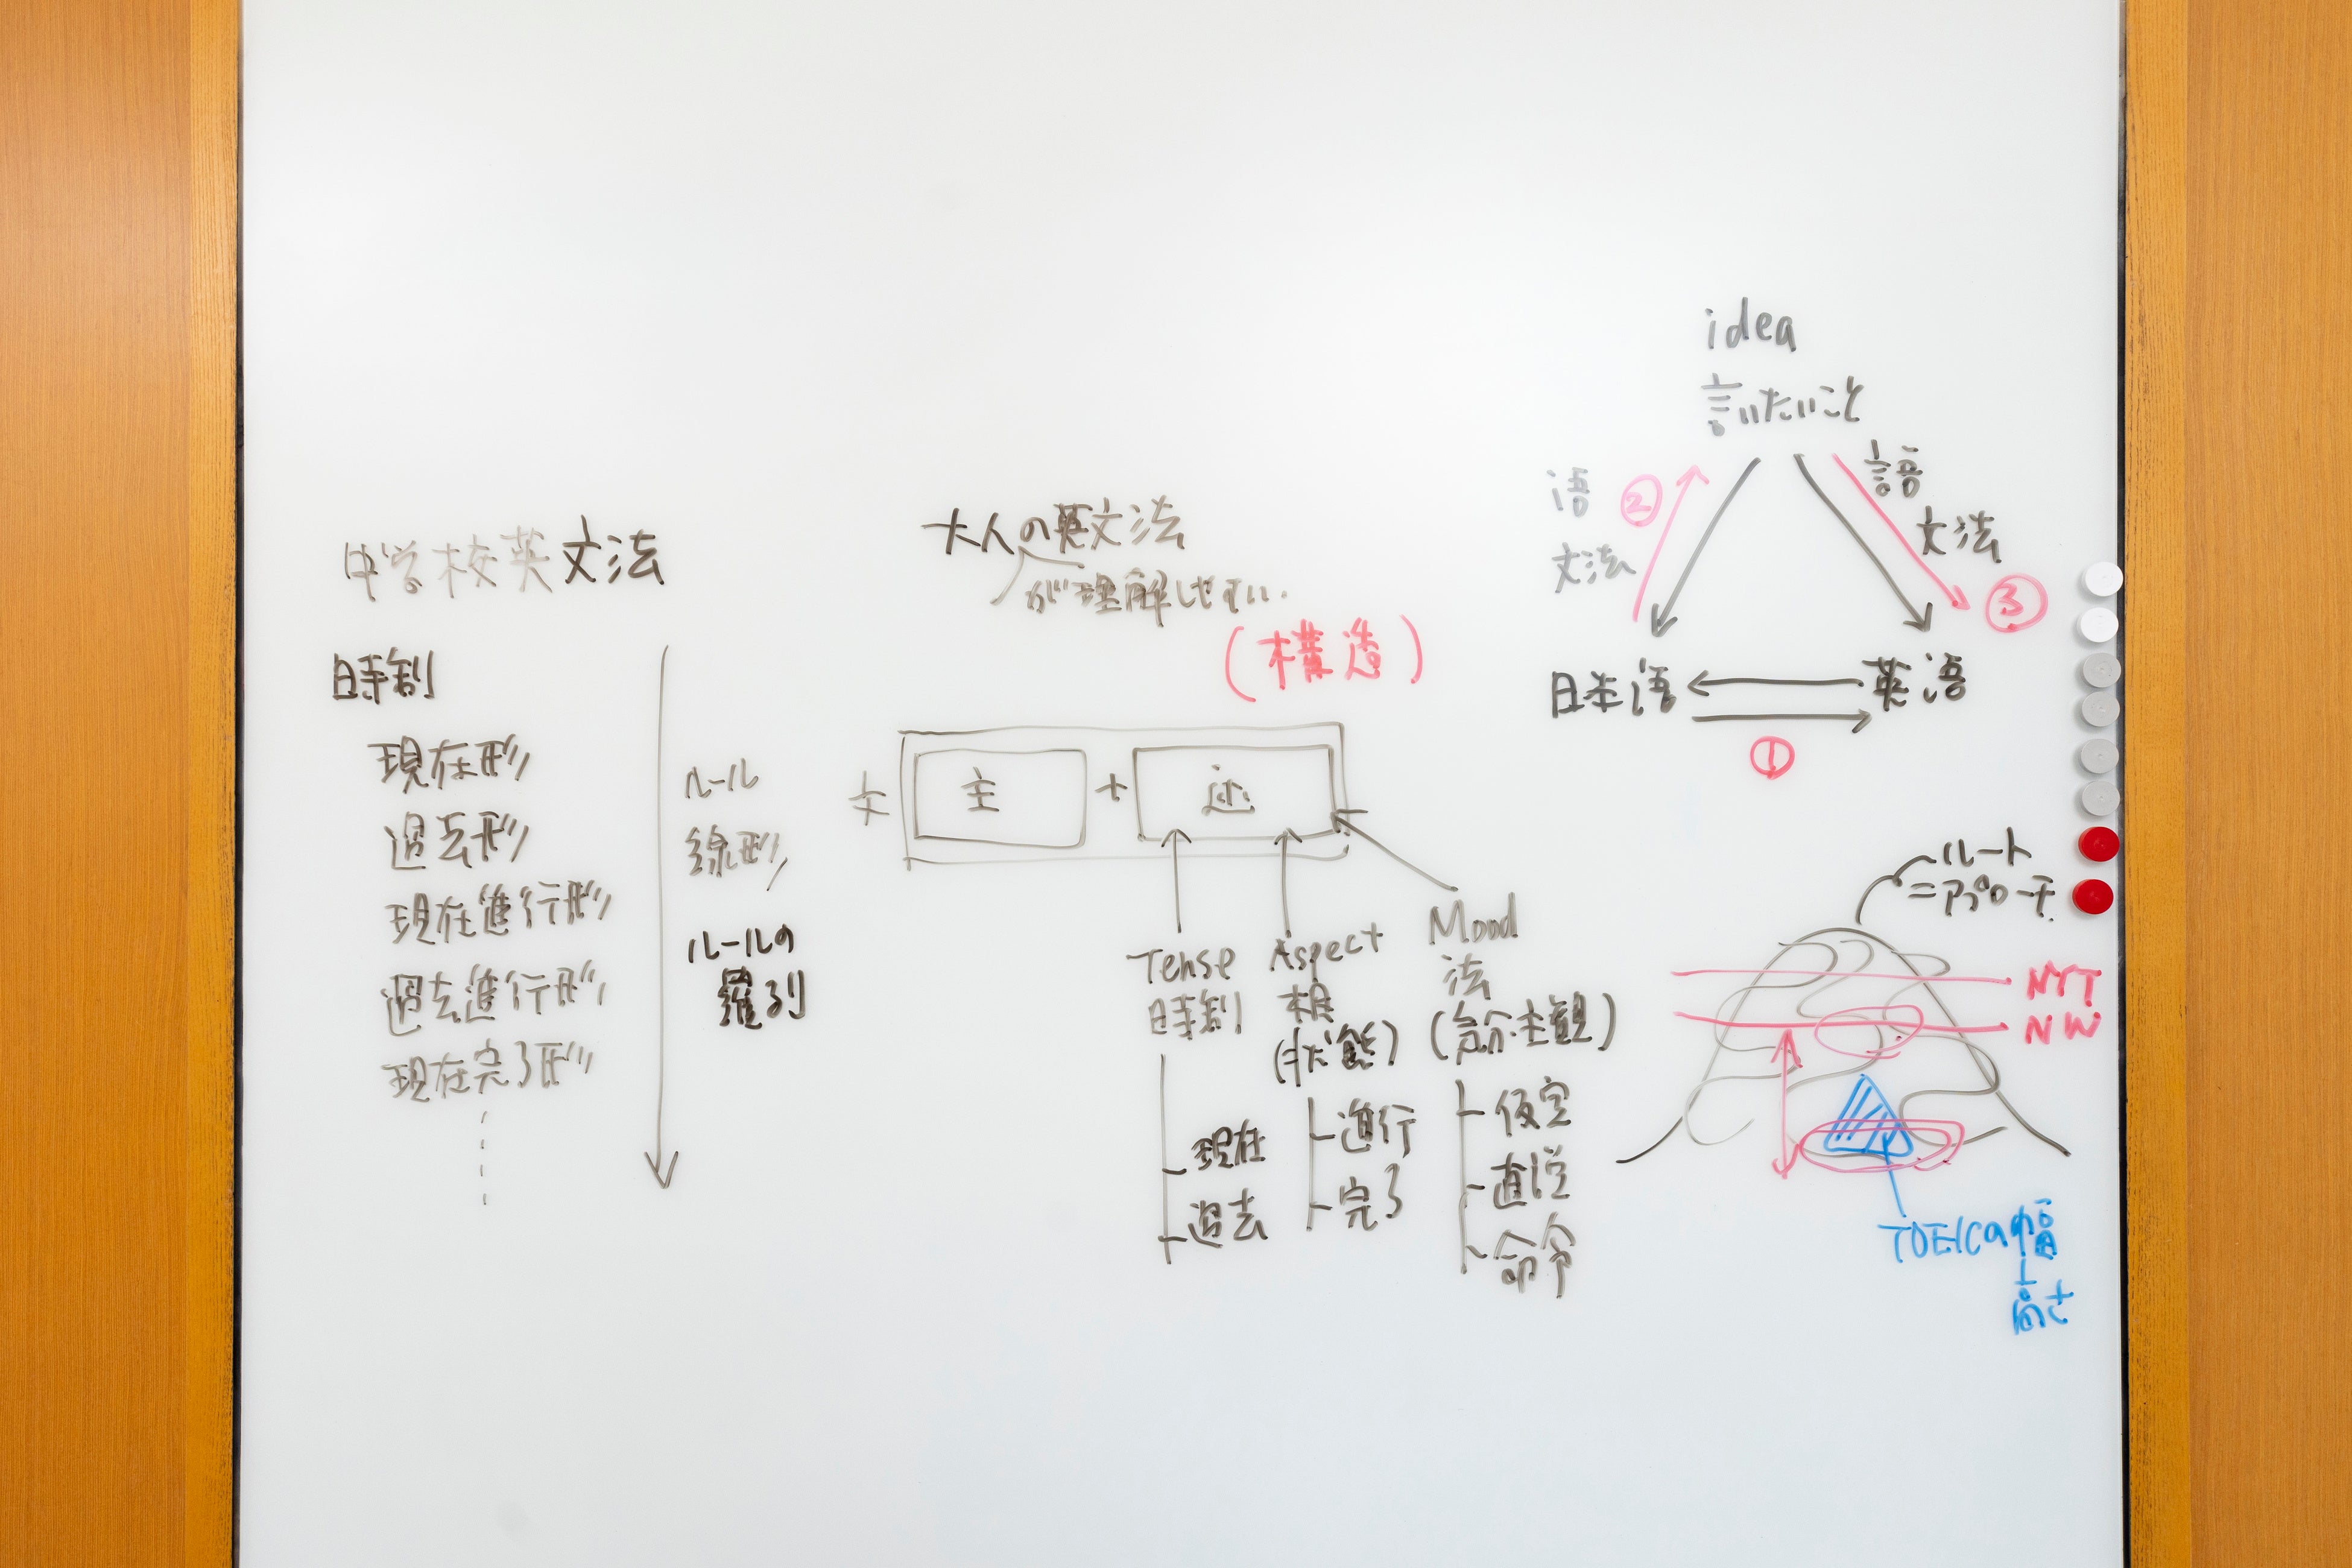 中学校英文法
時制
現在形
過去形
現在進行形
過去進行形
現在完了形
ルール
線形
ルールの
羅列
大人の英文法
が理解しやすい.
(構造)
文
主
+
述
Tense
時制
現在
過去
Aspect
相
(状態)
進行
完了
Mood
法
(気分・主観)
仮定
直説
命令
idea
言いたいこと
語
文法
②
語
文法
③
日本語
英語
①
ルート
=アプローチ
NYT
NW
TOEICの幅
高さ